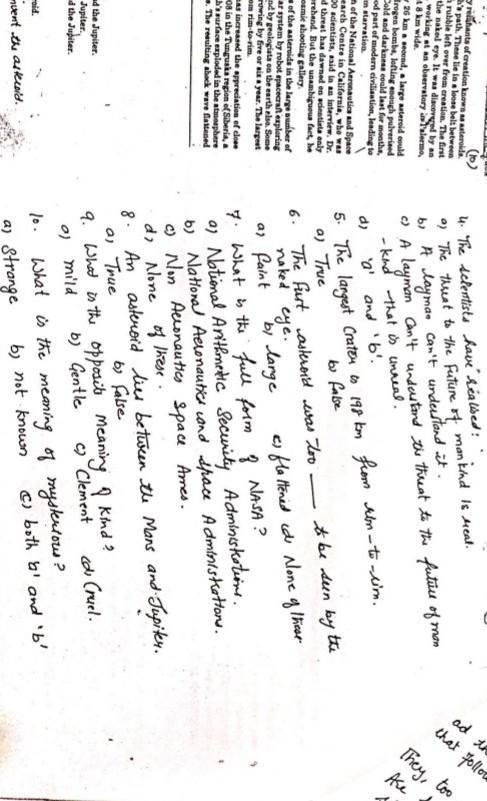 (b)
y remnants of creation known as asteroids.
s path. These lie in a loose belt between
t rubble left over from creation. The first
the naked eye. It was discovered by an
working at an observatory in Palermo,
t 8 km wide.
26 km a second, a large asteroid could
drogen bombs, lofting enough pulverised
Cold and darkness could last for months,
od part of modern civilisation, leading to
m starvation.
n of the National Aeronautics and Space
earch Centre in California, who was
00 scientists, said in an interview. Dr.
d threat has dawned on scientists only
orehend. But the unambiguous fact, he
osmic shooting gallery.
e of the asteroids in the large number of
r system by robot spacecraft exploring
nd by geologists on the earth also. Some
rowing by five or six a year. The largest
om rim-to-rim.
increased the appreciation of does
08 in the Tunguska region of Siberia, a
h's surface exploded in the atmosphere
e. The resulting shock wave flattened
roid.
d the Jupiter.
Jupiter.
d the Jupiter.
nd the Jupiter.
the asteroid.
4. The scientists have realised:
a) The threat to the future of mankind is real.
b) A layman can't understand it.
c) A layman can't understand the threat to the future of man
-kind that is unreal.
d) 'a' and 'b'.
5. The largest Crater is 198 km from rim-to-rim.
a) True b) false
6. The first asteroid was too ___ to be seen by the
naked eye.
a) faint b) large c) flattered d) None of these
7. What is the full form of NASA?
a) National Arithmetic Security Administrations.
b) National Aeronautics and Space Administrations.
c) Non Aeronautics Space Ames.
d) None of these.
8. An asteroid lies between the Mars and Jupiter.
a) True b) false
9. What is the opposite Meaning of Kind?
a) mild b) Gentle c) Clement d) Cruel.
10. What is the meaning of mysterious?
a) Strange b) not known c) both 'a' and 'b'
ad th
that follow
They, too
Are